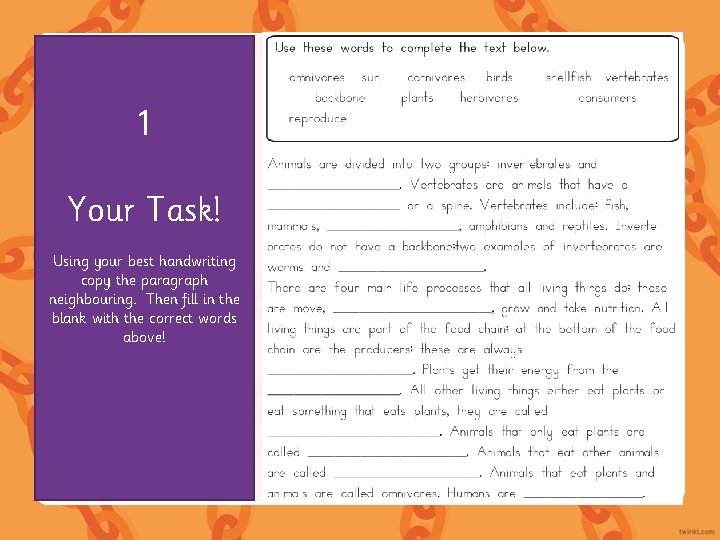 1
Your Task!
Using your best handwriting
copy the paragraph
neighbouring. Then fill in the
blank with the correct words
above!
Use these words to complete the text below.
omnivores sun carnivores birds shellfish vertebrates
backbone plants herbivores consumers
reproduce
Animals are divided into two groups: invertebrates and
____________________. Vertebrates are animals that have a
____________________ or a spine. Vertebrates include: fish,
mammals, ____________________, amphibians and reptiles. Inverte-
brates do not have a backbone;two examples of invertebrates are
worms and ____________________.
There are four main life processes that all living things do; these
are move, ____________________, grow and take nutrition. All
living things are part of the food chain; at the bottom of the food
chain are the producers; these are always
____________________. Plants get their energy from the
____________________. All other living things either eat plants or
eat something that eats plants, they are called
____________________. Animals that only eat plants are
called ____________________. Animals that eat other animals
are called ____________________. Animals that eat plants and
animals are called omnivores. Humans are ____________________.
twinkl.com